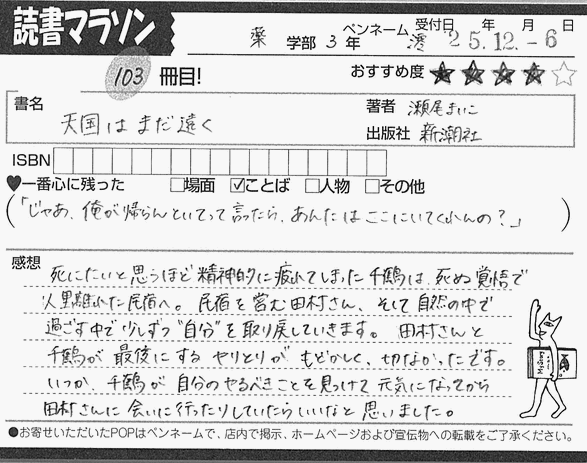 読書マラソン
薬 学部 3 年 ペンネーム 澪 受付日 25年12.月-6日
103 冊目! おすすめ度 ★★★★☆
書名 天国はまだ遠く 著者 瀬尾まいこ
出版社 新潮社
ISBN
♥一番心に残った □場面 ☑ことば □人物 □その他
(「じゃあ、俺が帰らんといてって言ったら、あんたはここにいてくれんの?」)
感想
死にたいと思うほど精神的に疲れてしまった千鶴は、死ぬ覚悟で
人里離れた民宿へ。民宿を営む田村さん、そして自然の中で
過ごす中で少しずつ“自分”を取り戻していきます。田村さんと
千鶴が最後にするやりとりがもどかしく、切なかったです。
いつか、千鶴が自分のやるべきことを見つけて元気になってから
田村さんに会いに行ったりしていたらいいなと思いました。
●お寄せいただいたPOPはペンネームで、店内で掲示、ホームページおよび宣伝物への転載をご了承ください。